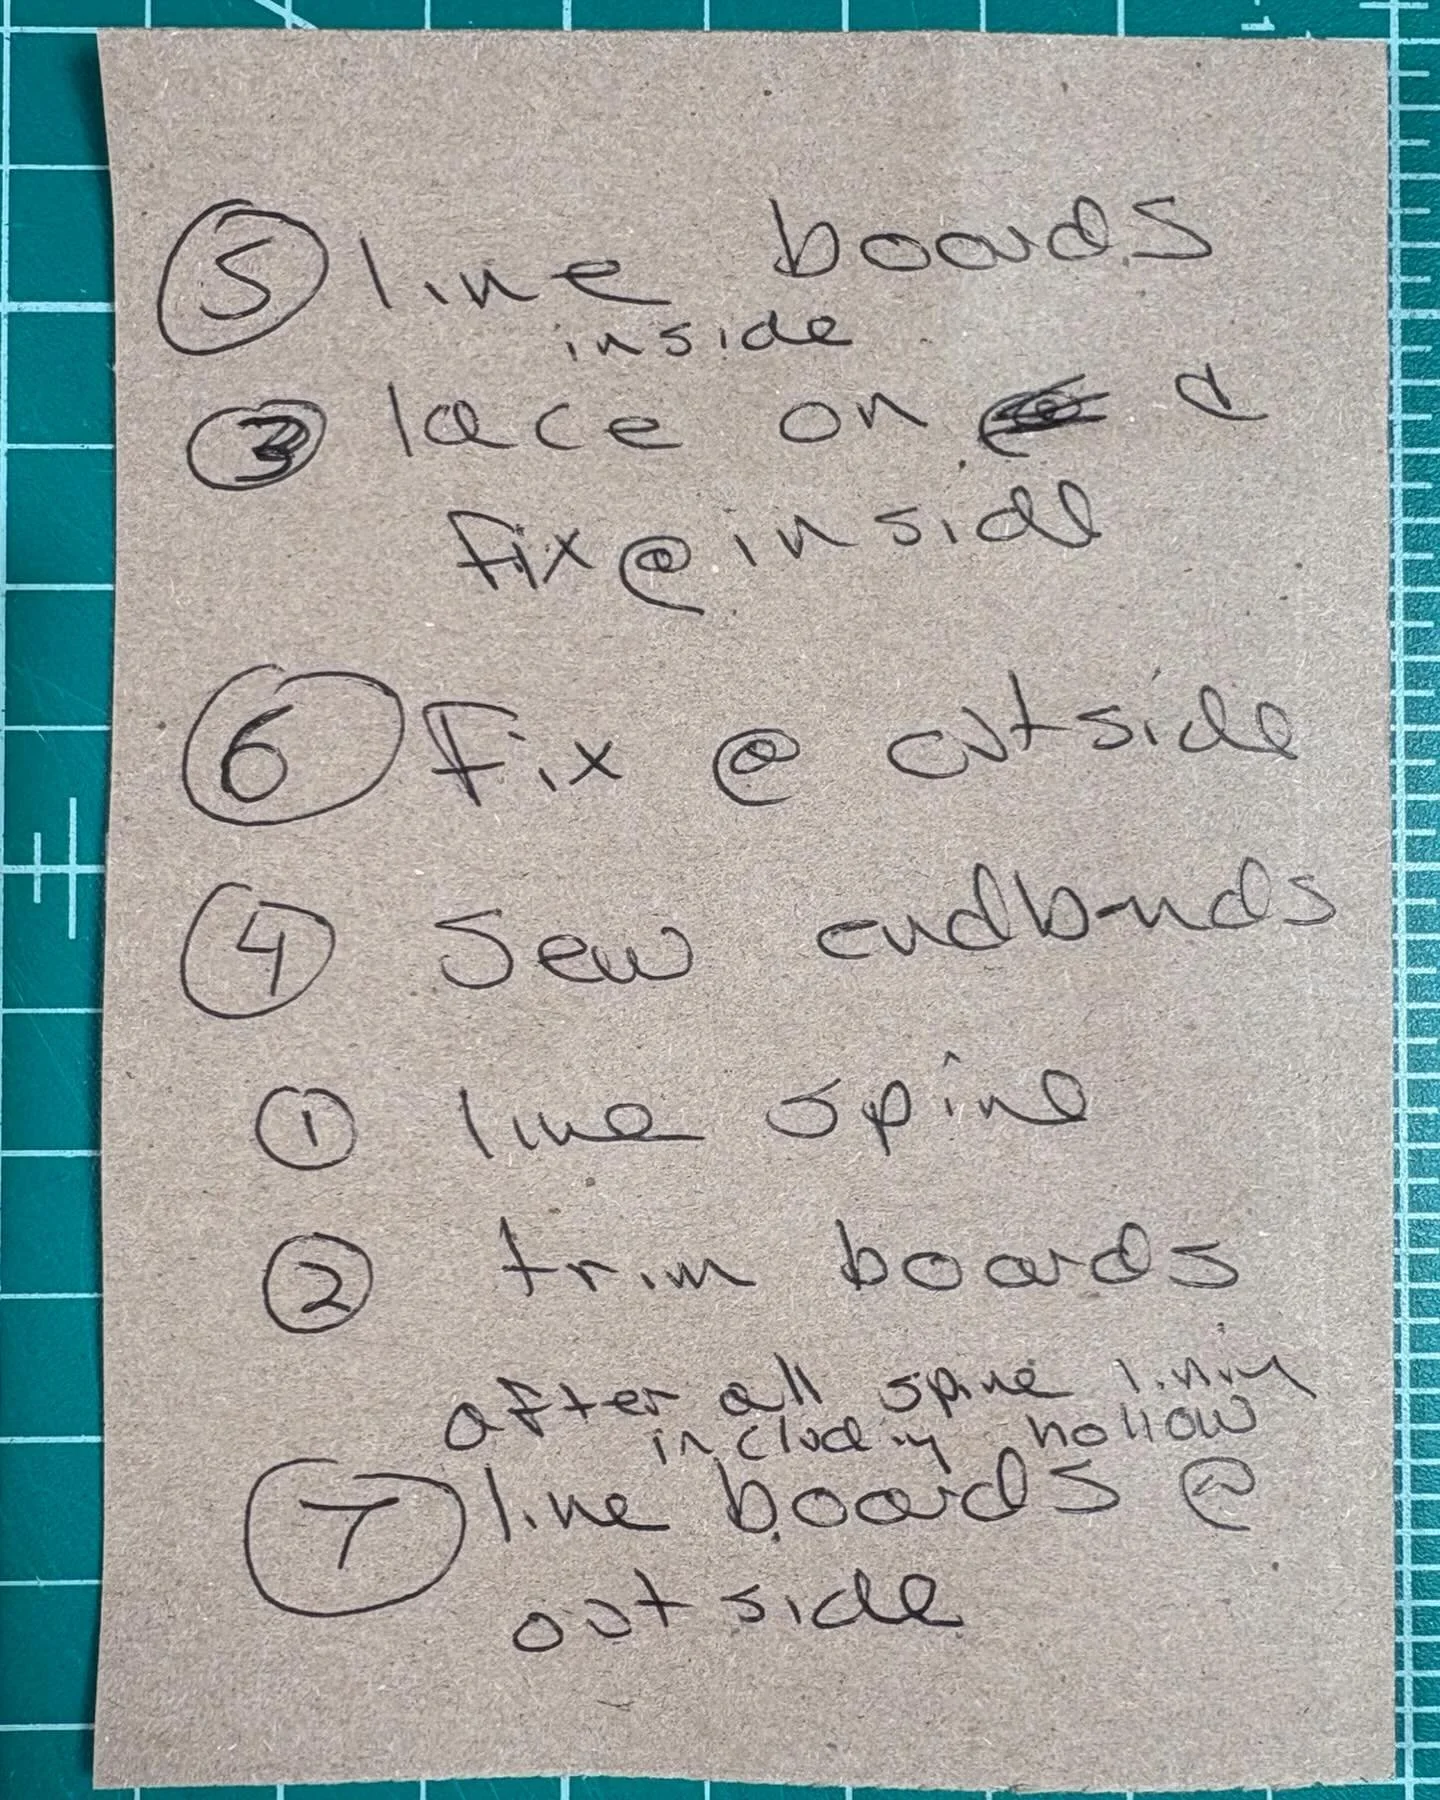 ⑤ line boards
inside
③ lace on &
fix @ inside
⑥ Fix @ outside
④ Sew endbands
① line spine
② trim boards
after all spine lining
including hollow
⑦ line boards @
outside